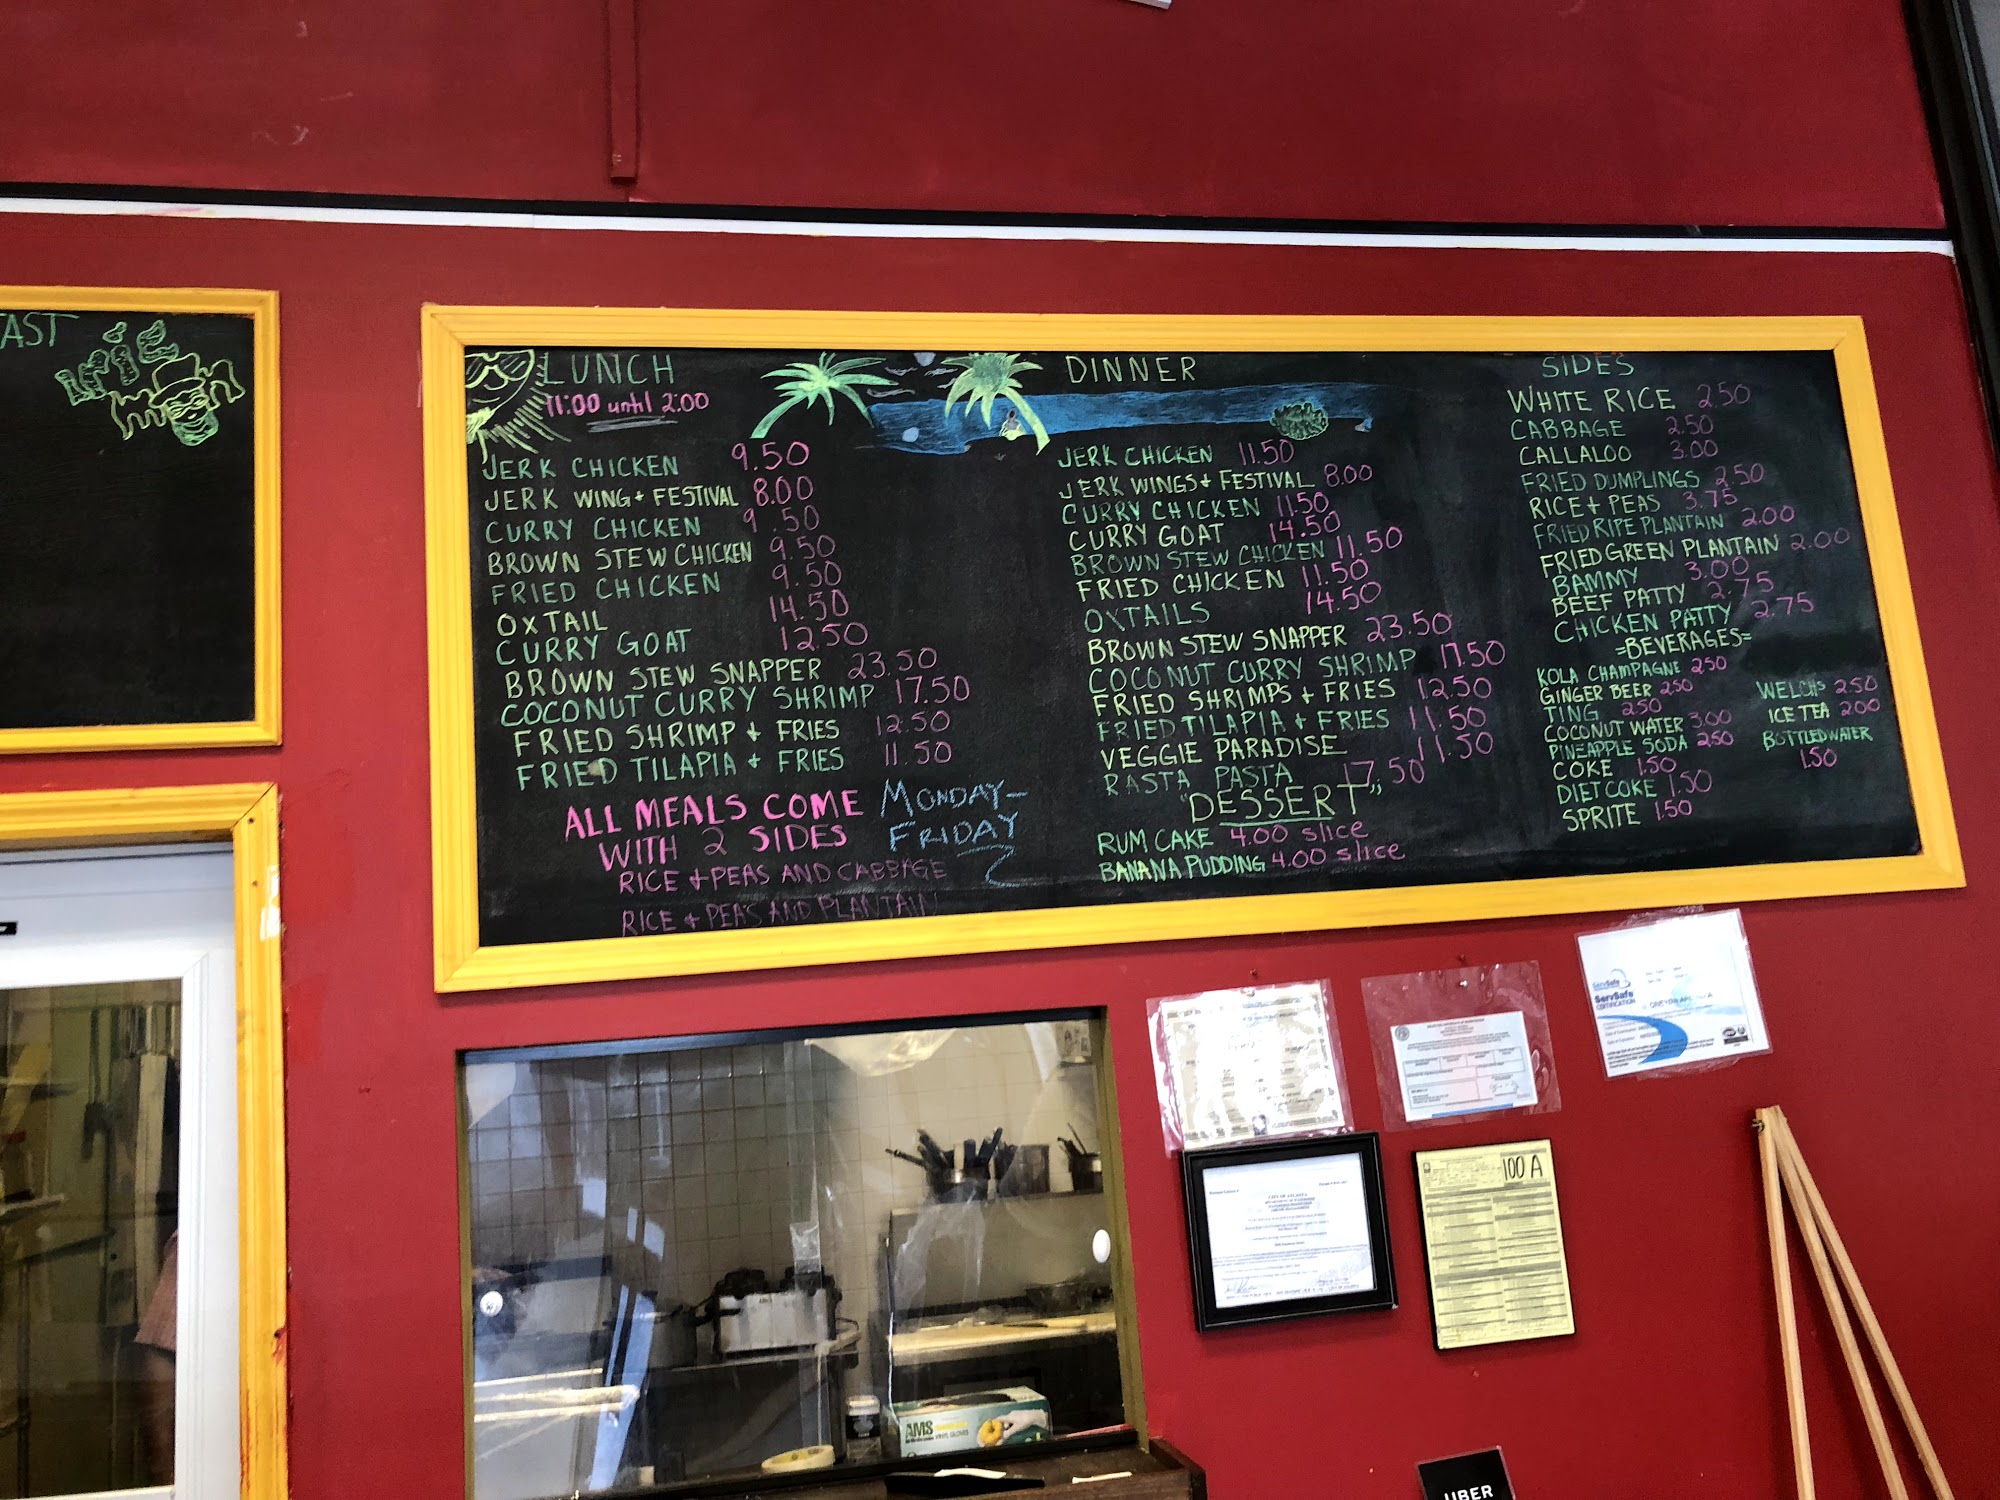 AST
LUNCH
11:00 until 2:00
JERK CHICKEN 9.50
JERK WING + FESTIVAL 8.00
CURRY CHICKEN 9.50
BROWN STEW CHICKEN 9.50
FRIED CHICKEN 9.50
OXTAIL 14.50
CURRY GOAT 12.50
BROWN STEW SNAPPER 23.50
COCONUT CURRY SHRIMP 17.50
FRIED SHRIMP + FRIES 12.50
FRIED TILAPIA + FRIES 11.50
ALL MEALS COME
WITH 2 SIDES
RICE + PEAS AND CABBAGE
RICE + PEAS AND PLANTAIN
MONDAY-
FRIDAY
DINNER
JERK CHICKEN 11.50
JERK WINGS + FESTIVAL 8.00
CURRY CHICKEN 11.50
CURRY GOAT 14.50
BROWN STEW CHICKEN 11.50
FRIED CHICKEN 11.50
OXTAILS 14.50
BROWN STEW SNAPPER 23.50
COCONUT CURRY SHRIMP 17.50
FRIED SHRIMPS + FRIES 12.50
FRIED TILAPIA + FRIES 11.50
VEGGIE PARADISE 11.50
RASTA PASTA 17.50
"DESSERT"
RUM CAKE 4.00 slice
BANANA PUDDING 4.00 slice
SIDES
WHITE RICE 2.50
CABBAGE 2.50
CALLALOO 3.00
FRIED DUMPLINGS 2.50
RICE + PEAS 3.75
FRIED RIPE PLANTAIN 2.00
FRIED GREEN PLANTAIN 2.00
BAMMY 3.00
BEEF PATTY 2.75
CHICKEN PATTY 2.75
=BEVERAGES=
KOLA CHAMPAGNE 2.50
GINGER BEER 2.50
TING 2.50
COCONUT WATER 3.00
PINEAPPLE SODA 2.50
COKE 1.50
DIET COKE 1.50
SPRITE 1.50
WELCHS 2.50
ICE TEA 2.00
BOTTLED WATER
1.50
ServSafe
ServSafe
CERTIFICATION
CITY OF ATLANTA
100 A
AMS
VINYL GLOVES
UBER